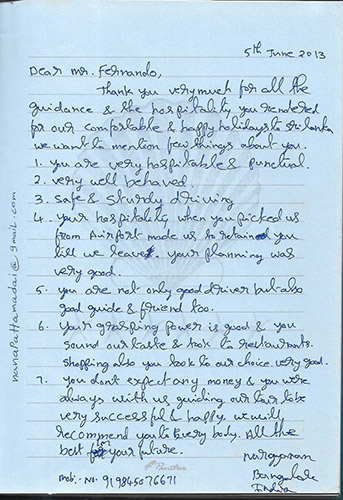 5th June 2013
Dear mr. Fernando,
Thank you very much for all the
guidance & the hospitality you rendered
for our comfortable & happy holidays to Srilanka
we want to mention few things about you.
1. you are very hospitable & punctual.
2. very well behaved.
3. safe & sturdy driving
4. your hospitality when you picked us
from Airport made us to retained you
till we leave. your planning was
very good.
5. you are not only good driver but also
good guide & friend too.
6. your grasping power is good & you
sound our taste & took to restaurants.
shopping also you took to our choice. very good.
7. you don't expect any money & you were
always with us guiding our tour to be
very successful & happy. we will
recommend you to Every body. All the
best for your future.
Bangalore
India
mob:- No: 919845076671